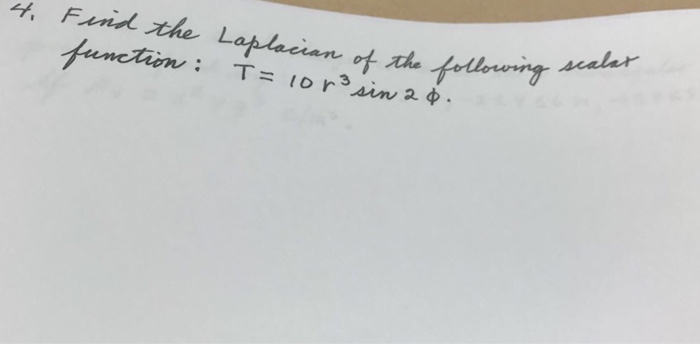 4. Find the Laplacian of the following scalar
function: T = 10 r³ sin 2 φ.